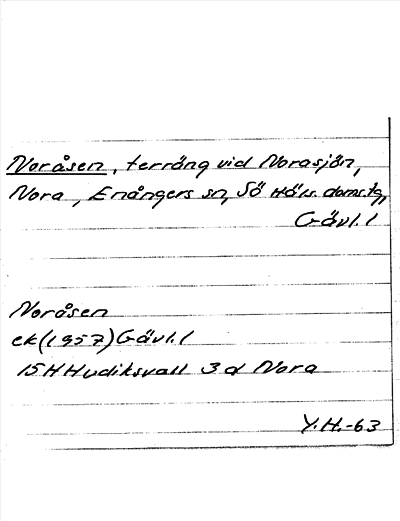 Noråsen, terräng vid Norasjön,
Nora, Enångers sn, Sö Häls. domstg,
Gävl. l
Noråsen
ek (1957) Gävl. l
15H Hudiksvall 3 d Nora
Y.H.-63